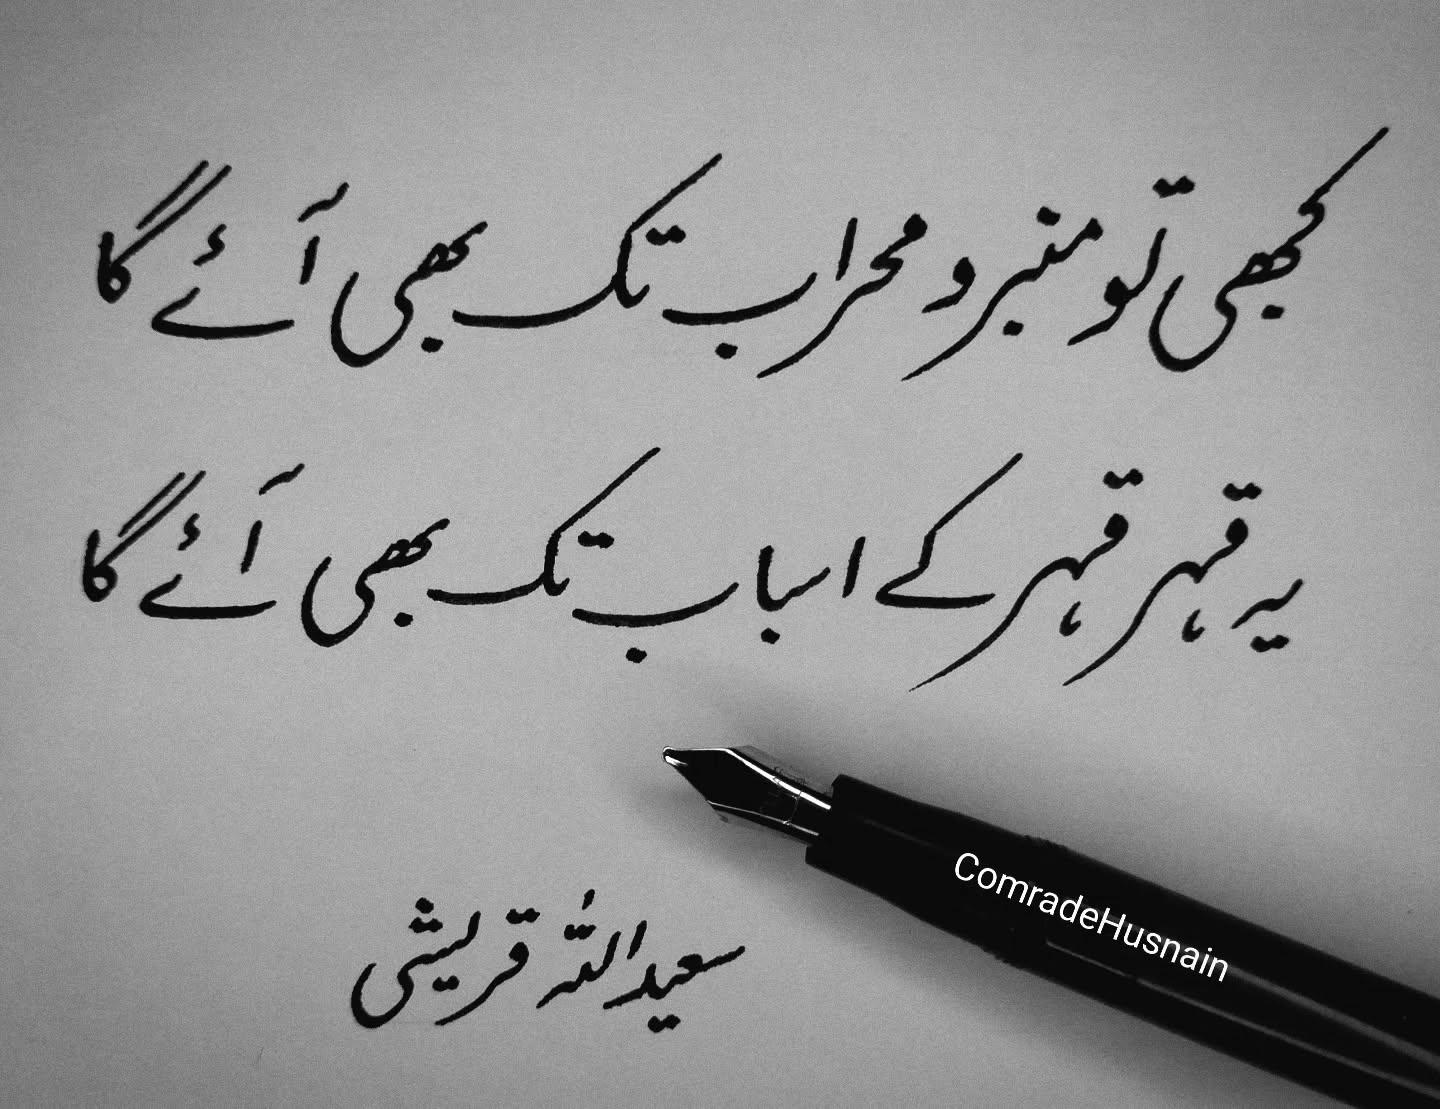 کبھی تو منبر و محراب تک بھی آئے گا
یہ قہر قہر کے اسباب تک بھی آئے گا
سعید اللہ قریشی
ComradeHusnain